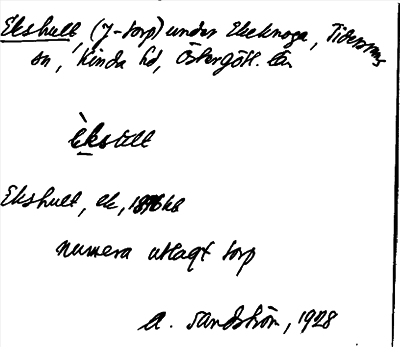 Ekshult, (7-torp) under Ekeknoga, Tidersrums
sn, Kinda hd, Östergötl. län
èksult
Ekshult, ek, 1876 kb
numera utlagt torp
A. Sandström, 1928